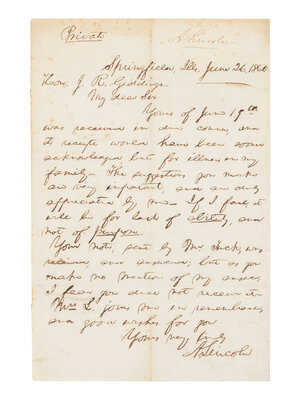 Private
A. Lincoln
Springfield, Ills. June 26, 1860
Hon. J. R. Giddings
My dear Sir
Yours of June 19th
was received in due course, and
its receipt would have been sooner
acknowledged but for illness in my
family. The suggestions you make
are very important, and are duly
appreciated by me. If I fail, it
will be for lack of ability, and
not of purpose.
Your note, sent by Mr. Tuck, was
received, and answered; but as you
make no mention of my answer,
I fear you did not receive it.
Mrs. L. joins me in remembrances,
and good wishes for you.
Yours very truly
A. Lincoln